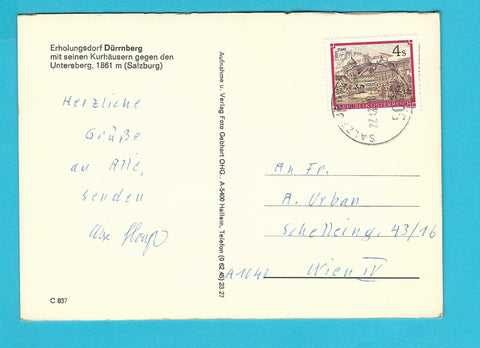 Erholungsdorf Dürrnberg
mit seinen Kurhäusern gegen den
Untersberg, 1861 m (Salzburg)
Herzliche
Grüße
an Alle,
senden
C 837
Aufnahme u. Verlag Foto Gebhart OHG., A-5400 Hallein, Telefon (0 62 45) 23 27
4s
REPUBLIK ÖSTERREICH
An Fr.
A. Urban
Schelleing. 43/16
A1040 Wien IV